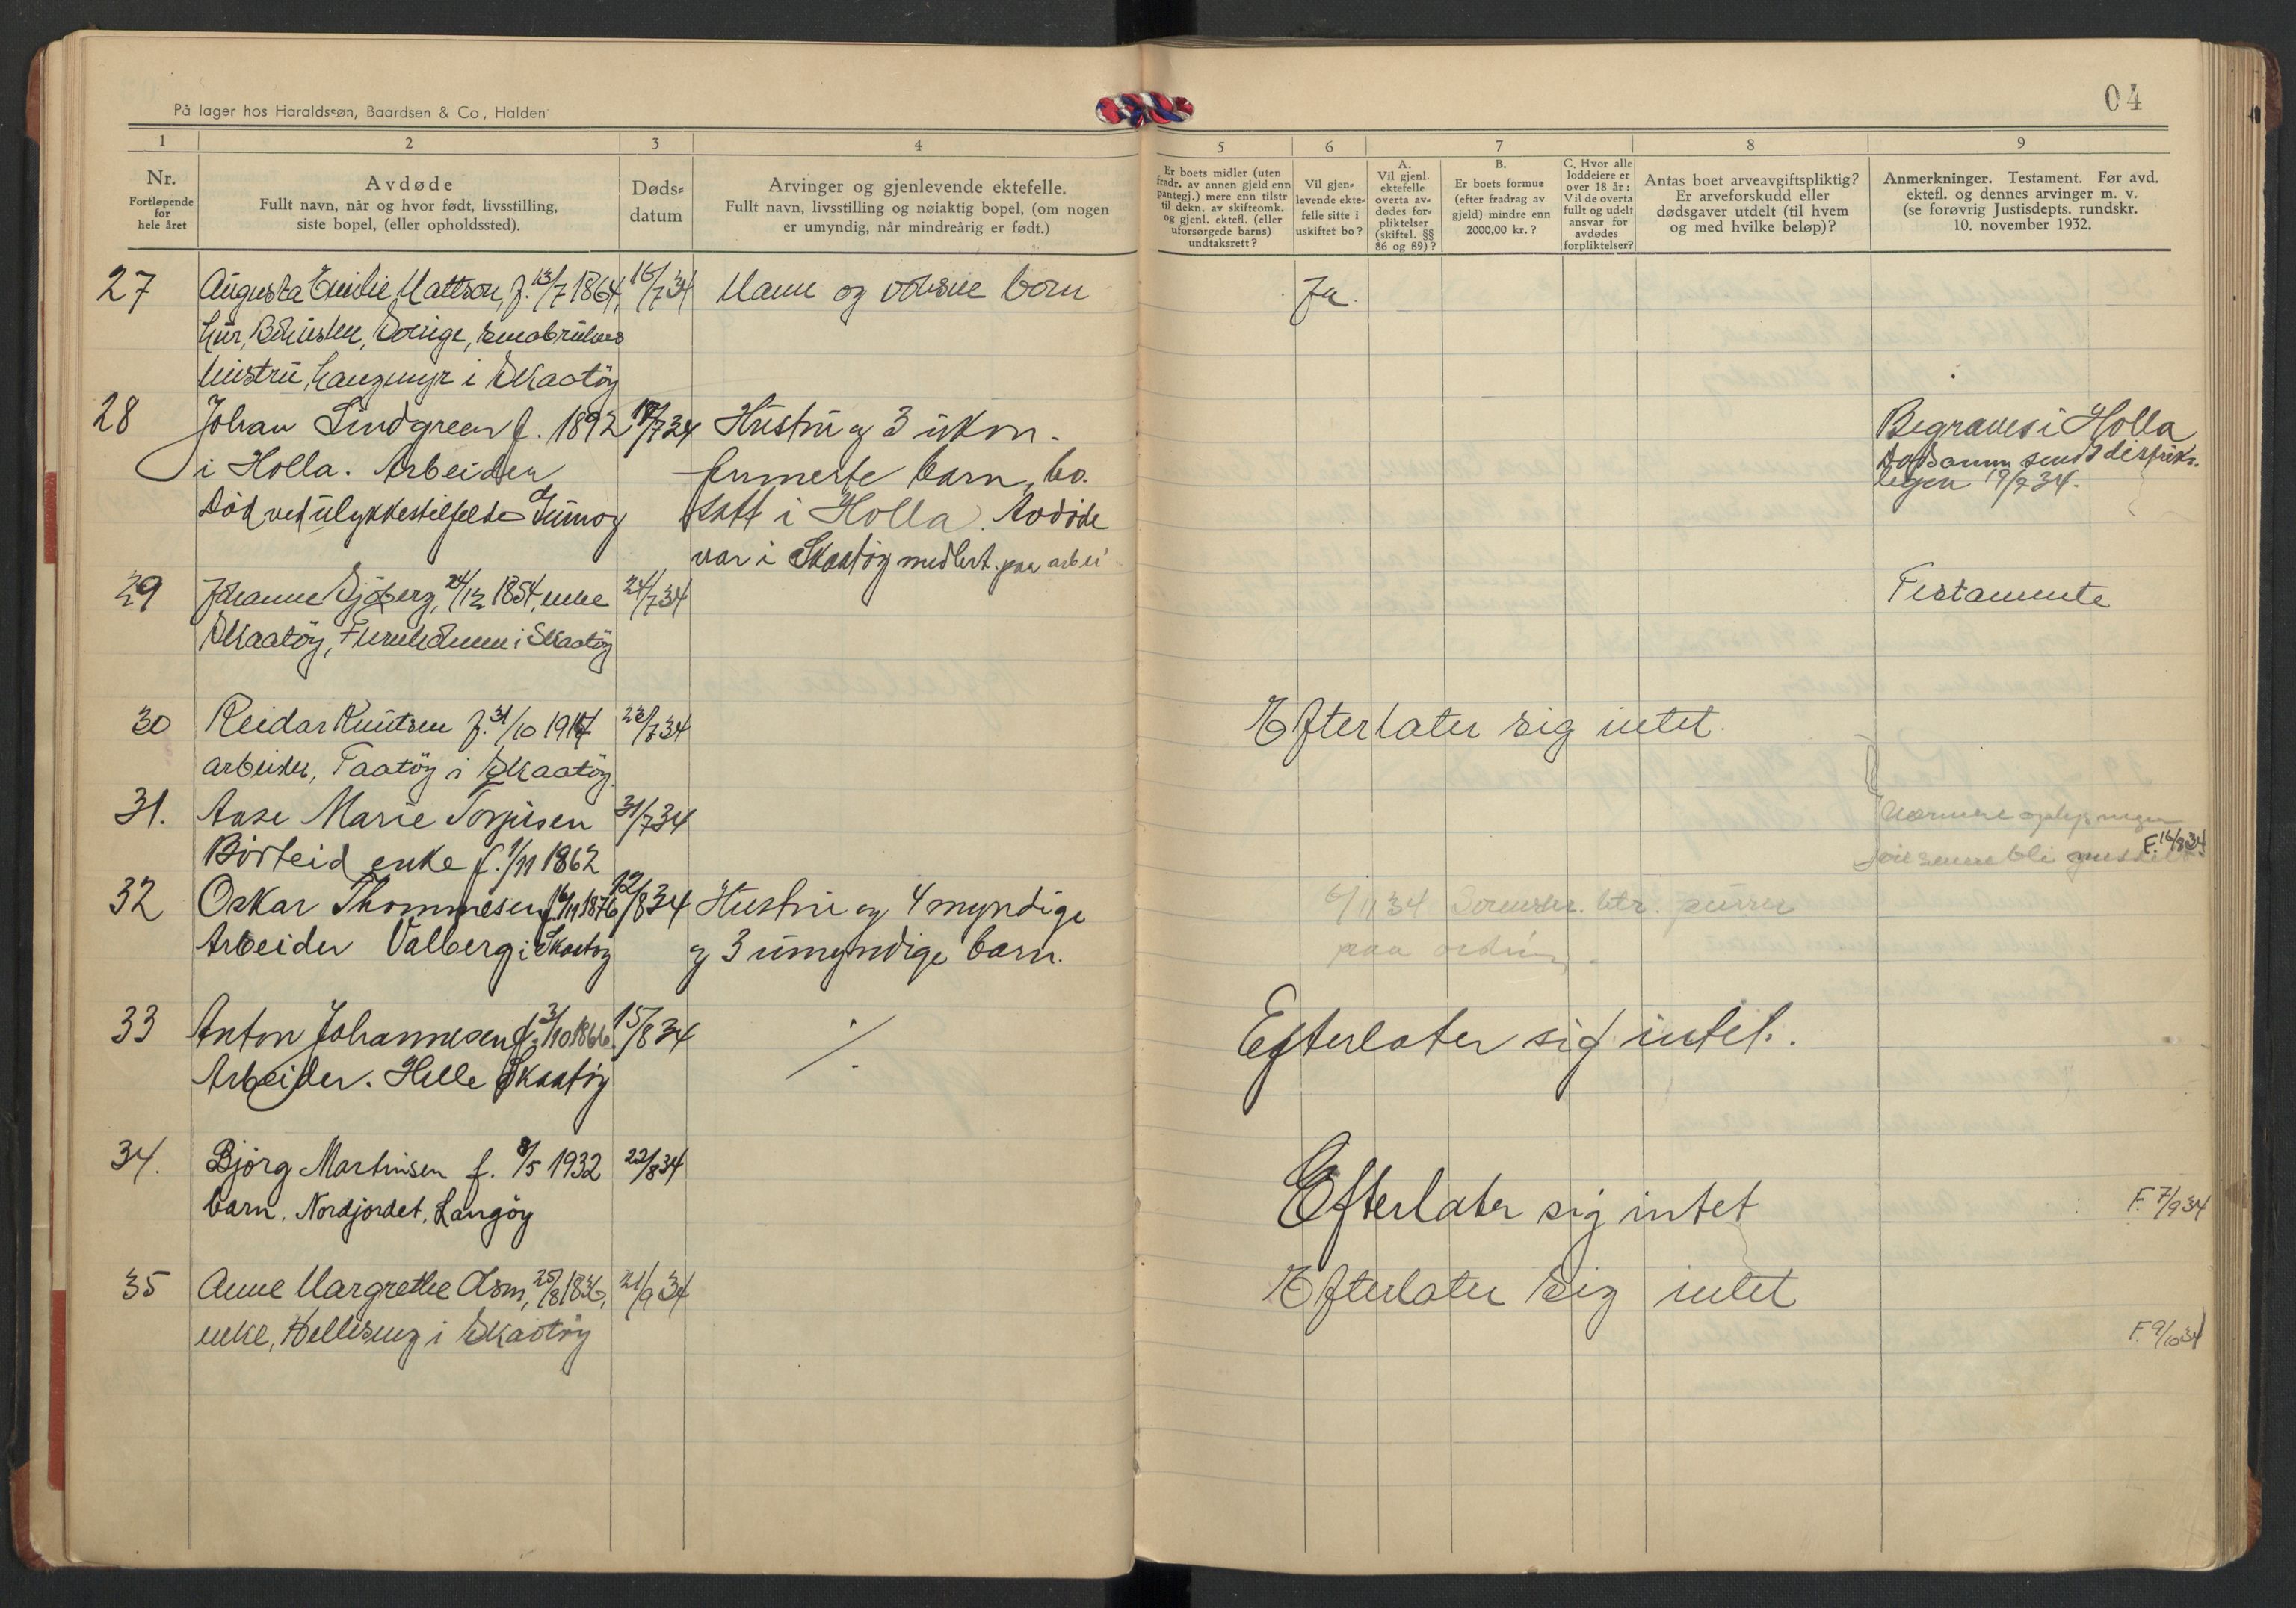 På lager hos Haraldssøn, Baardsen & Co, Halden
04
1 2 3 4 5 6 7 8 9
Nr.
Fortløpende
for
hele året
Avdøde
Fullt navn, når og hvor født, livsstilling,
siste bopel, (eller opholdssted).
Døds-
datum
Arvinger og gjenlevende ektefelle.
Fullt navn, livsstilling og nøiaktig bopel, (om nogen
er umyndig, når mindreårig er født.)
Er boets midler (uten
fradr. av annen gjeld enn
pantegj.) mere enn tilstr
til dekn. av skifteomk.
og gjenl. ektefl. (eller
uforsørgede barns)
undtaksrett?
Vil gjen-
levende ekte-
felle sitte i
uskiftet bo?
A.
Vil gjenl.
ektefelle
overta av-
dødes for-
pliktelser
(skiftel. §§
86 og 89)?
B.
Er boets formue
(efter fradrag av
gjeld) mindre enn
2000,00 kr.?
C. Hvor alle
loddeiere er
over 18 år:
Vil de overta
fullt og udelt
ansvar for
avdødes
forpliktelser?
Antas boet arveavgiftspliktig?
Er arveforskudd eller
dødsgaver utdelt (til hvem
og med hvilke beløp)?
Anmerkninger. Testament. Før avd.
ektefl. og dennes arvinger m. v.
(se forøvrig Justisdepts. rundskr.
10. november 1932.
27 Augusta Emilie Mattson, f. 13/7 1864, 16/7 34 Mann og voksne born Ja.
Sverige,
hustru, Langmyr i Skaatöy
28 Johan Lindgreen f. 1892 18/7 34 Hustru og 3 ukon- Begraves i Holla
i Holla. Arbeider firmerte barn, bo- Dødsanm sendt distrikts-
Død ved ulykkestilfelde satt i Holla. Avdøde legen 19/7 34.
var i Skaatöy midlert. paa arbei
29 Johanne Sjøberg, 24/12 1854, enke 24/7 34 Testamente
Skaatöy, i Skaatöy
30 Reidar Knutsen f. 31/10 1917 23/7 34 Efterlater sig intet.
arbeider, Taatöy i Skaatöy
31. Aase Marie Torjusen 31/7 34 Nærmere oplysninger
Börteid enke f. 1/11 1862 vil senere bli F. 16/8 34
32 Oskar Thommesen f. 16/11 1876 12/8 34 Hustru og 4 myndige 6/11 34
Arbeider Valberg i Skaatöy og 3 umyndige barn. paa
33 Anton Johannesen f. 3/10 1866 15/8 34 ./. Efterlater sig intet.
Arbeider. Helle Skaatöy
34. Bjørg Martinsen f. 8/5 1932 22/8 34 Efterlater sig intet F. 7/9 34
barn, Nordjordet, Langöy
35 Anne Margrethe Olsen, 25/8 1836, 21/9 34 Efterlater sig intet
enke, i Skaatöy F. 9/10 34